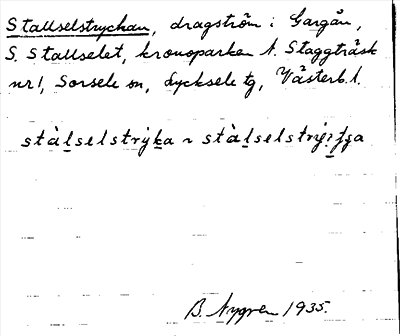 Stallselstryckan, dragström i Gargån,
S. Stallselet, kronoparken N. Staggträsk
nr 1, Sorsele sn, Lycksele tg, Västerb. l.
stàlselstrýka ~ stàlselstrý
B. Nygren 1935.